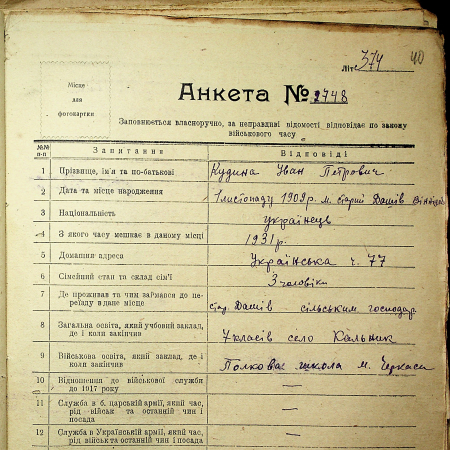 40
літ 374
Місце
для
фотокартки
Анкета № 2748
Заповнюється власноручно, за неправдиві відомості відповідає по закону
військового часу
№№
п-п
Запитання
Відповіді
1 Прізвище, ім'я та по-батькові Кудина Іван Петрович
2 Дата та місце народження 1 листопаду 1909 р. м. старий Дашів
3 Національність українець
4 З якого часу мешкає в даному місці 1931 р.
5 Домашня адреса Українська ч. 77
6 Сімейний стан та склад сім'ї 3 чоловіки
7 Де проживав та чим займався до пе-
реїзду в дане місце
Дашів сільським господар.
8 Загальна освіта, який учбовий заклад,
де і коли закінчив
7 класів село Кальник
9 Військова освіта, який заклад, де і
коли закінчив
Полкова школа м. Черкаси
10 Відношення до військової служби
до 1917 року
—
11 Служба в б. царській армії, який час,
рід військ та останній чин і
посада
—
12 Служба в Українській армії, який час,
рід військ та останній чин і посада
—